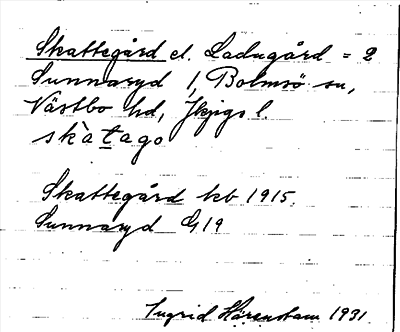 Skattegård el. Ladugård = 2
Sunnaryd 1, Bolmsö sn,
Västbo hd, Jkpgs l.
skàtago
Skattegård kb 1915.
Sunnaryd G19
Ingrid Härenstam 1931.